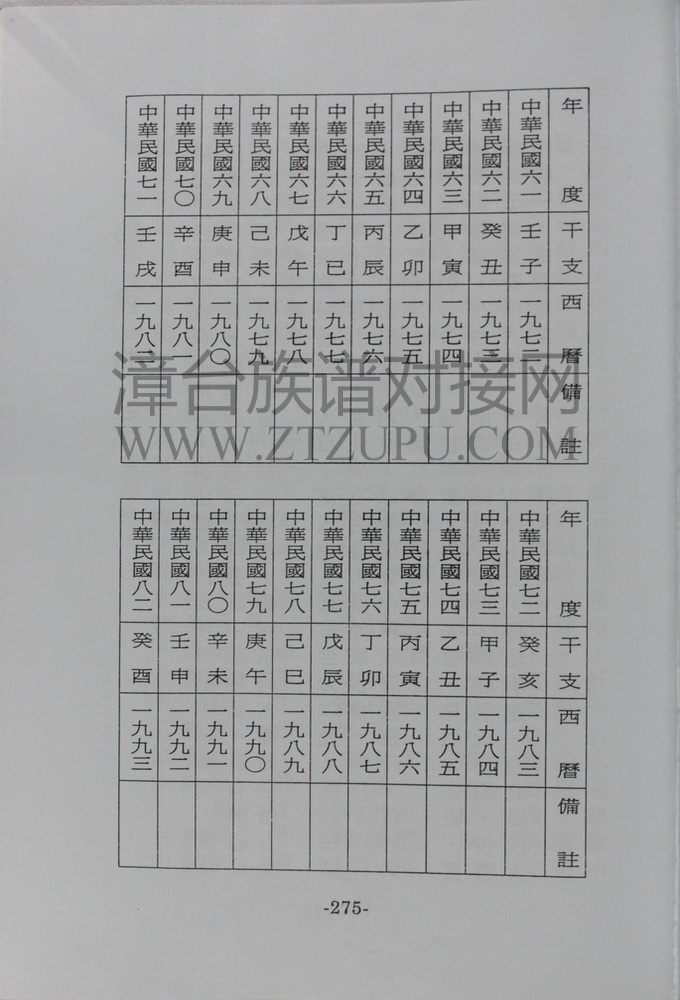 年度 干支 西曆 備註
中華民國六一 壬子 一九七二
中華民國六二 癸丑 一九七三
中華民國六三 甲寅 一九七四
中華民國六四 乙卯 一九七五
中華民國六五 丙辰 一九七六
中華民國六六 丁巳 一九七七
中華民國六七 戊午 一九七八
中華民國六八 己未 一九七九
中華民國六九 庚申 一九八〇
中華民國七〇 辛酉 一九八一
中華民國七一 壬戌 一九八二
漳台族谱对接网
WWW.ZTZUPU.COM
年度 干支 西曆 備註
中華民國七二 癸亥 一九八三
中華民國七三 甲子 一九八四
中華民國七四 乙丑 一九八五
中華民國七五 丙寅 一九八六
中華民國七六 丁卯 一九八七
中華民國七七 戊辰 一九八八
中華民國七八 己巳 一九八九
中華民國七九 庚午 一九九〇
中華民國八〇 辛未 一九九一
中華民國八一 壬申 一九九二
中華民國八二 癸酉 一九九三
-275-